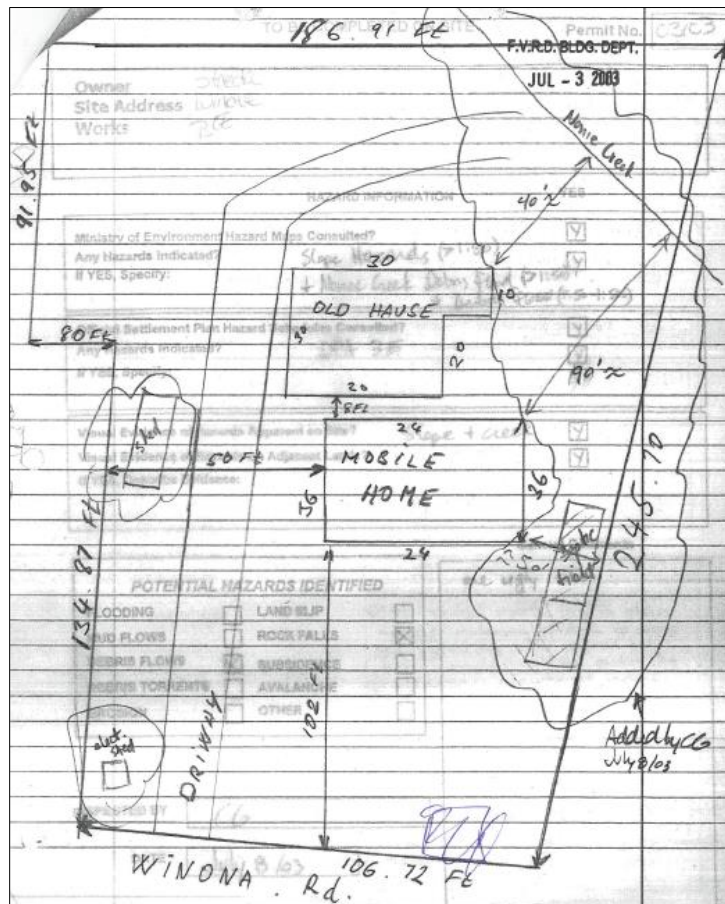 TO BE COMPLETED ON SITE
Permit No. 03/03
186.91 Ft
F.V.R.D. BLDG. DEPT.
JUL - 3 2003
Owner
Site Address
Works
91.95 Ft
Nonie Creek
HAZARD INFORMATION YES
40'≈
Ministry of Environment Hazard Maps Consulted? Y
Any Hazards Indicated? Slope Hazards Y
If YES, Specify: + Nonie Creek Debris Flood
30
10
OLD HAUSE
30
20
80 Ft
Settlement Plan Hazard Consulted? Y
Any Hazards Indicated?
If YES,
90'≈
20
8 Ft
24
Slope + Creek Y
shed
50 Ft
MOBILE
HOME
36
36
Y
24
245.70
134.87 Ft
POTENTIAL HAZARDS IDENTIFIED
FLOODING LAND SLIP
MUD FLOWS ROCK FALLS
DEBRIS FLOWS SUBSIDENCE
DEBRIS TORRENTS AVALANCHE
EROSION OTHER
102 Ft
DRIWAY
elect.
shed
Added by CG
July 8/03
INSPECTED BY CG
DATE July 8/03
106.72 Ft
WINONA Rd.